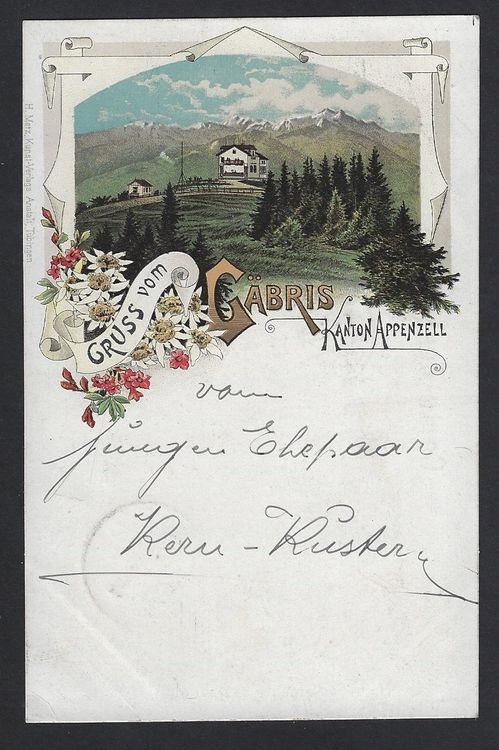 H. Metz, Kunst-Verlags-Anstalt, Tübingen
GRUSS vom
GÄBRIS
KANTON APPENZELL
vom
jungen Ehepaar
Kern-Kuster